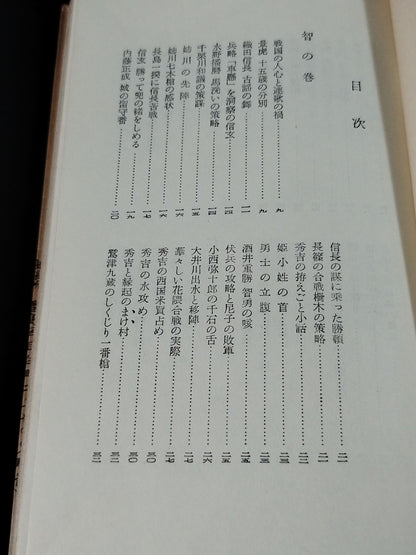 目次
智の巻
戦国の人心と連歌の禍……九
景虎 十五歳の分別……九
織田信長 古謡の舞……一一
兵略「車懸」を洞察の信玄……一四
永野播磨 馬洗いの策略……一四
千曲川和議の策謀……一五
姉川の先陣……一六
姉川七本槍の感状……一六
長島一揆に信長苦戦……一七
信玄 勝って兜の緒をしめる……一九
内藤正成 城の留守番……二〇
信長の謀に乗った勝頼……二一
長篠の合戦樹木の策略……二一
秀吉の拵えごと小話……二二
姫小姓の首……二三
勇士の立腹……二三
酒井重勝 智勇の咳……二五
伏兵の攻略と尼子の敗軍……二五
小西弥十郎の千石の舌……二六
大井川出水と移陣……二七
華々しい花隈合戦の実際……二七
秀吉の西国米買占め……二八
秀吉の水攻め……三〇
秀吉と縁起のまけ村……三〇
鷲津九蔵のしくじり一番槍……三二